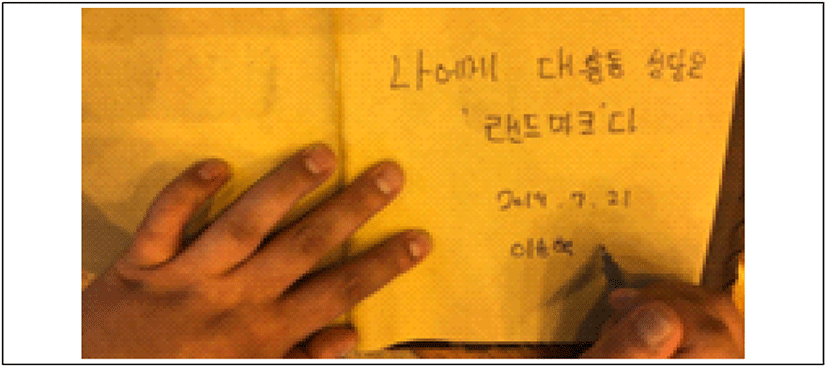 나에게 대흥동 성당은
'랜드마크'다
2014. 7. 21